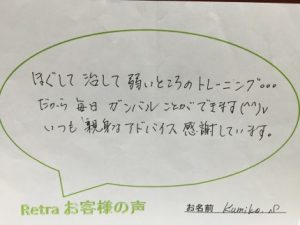 ほぐして 治して 弱いところの トレーニング・・・
だから 毎日 ガンバル ことが できます(^^)v
いつも 親身な アドバイス 感謝しています。
Retra お客様の声
お名前 Kumiko. S